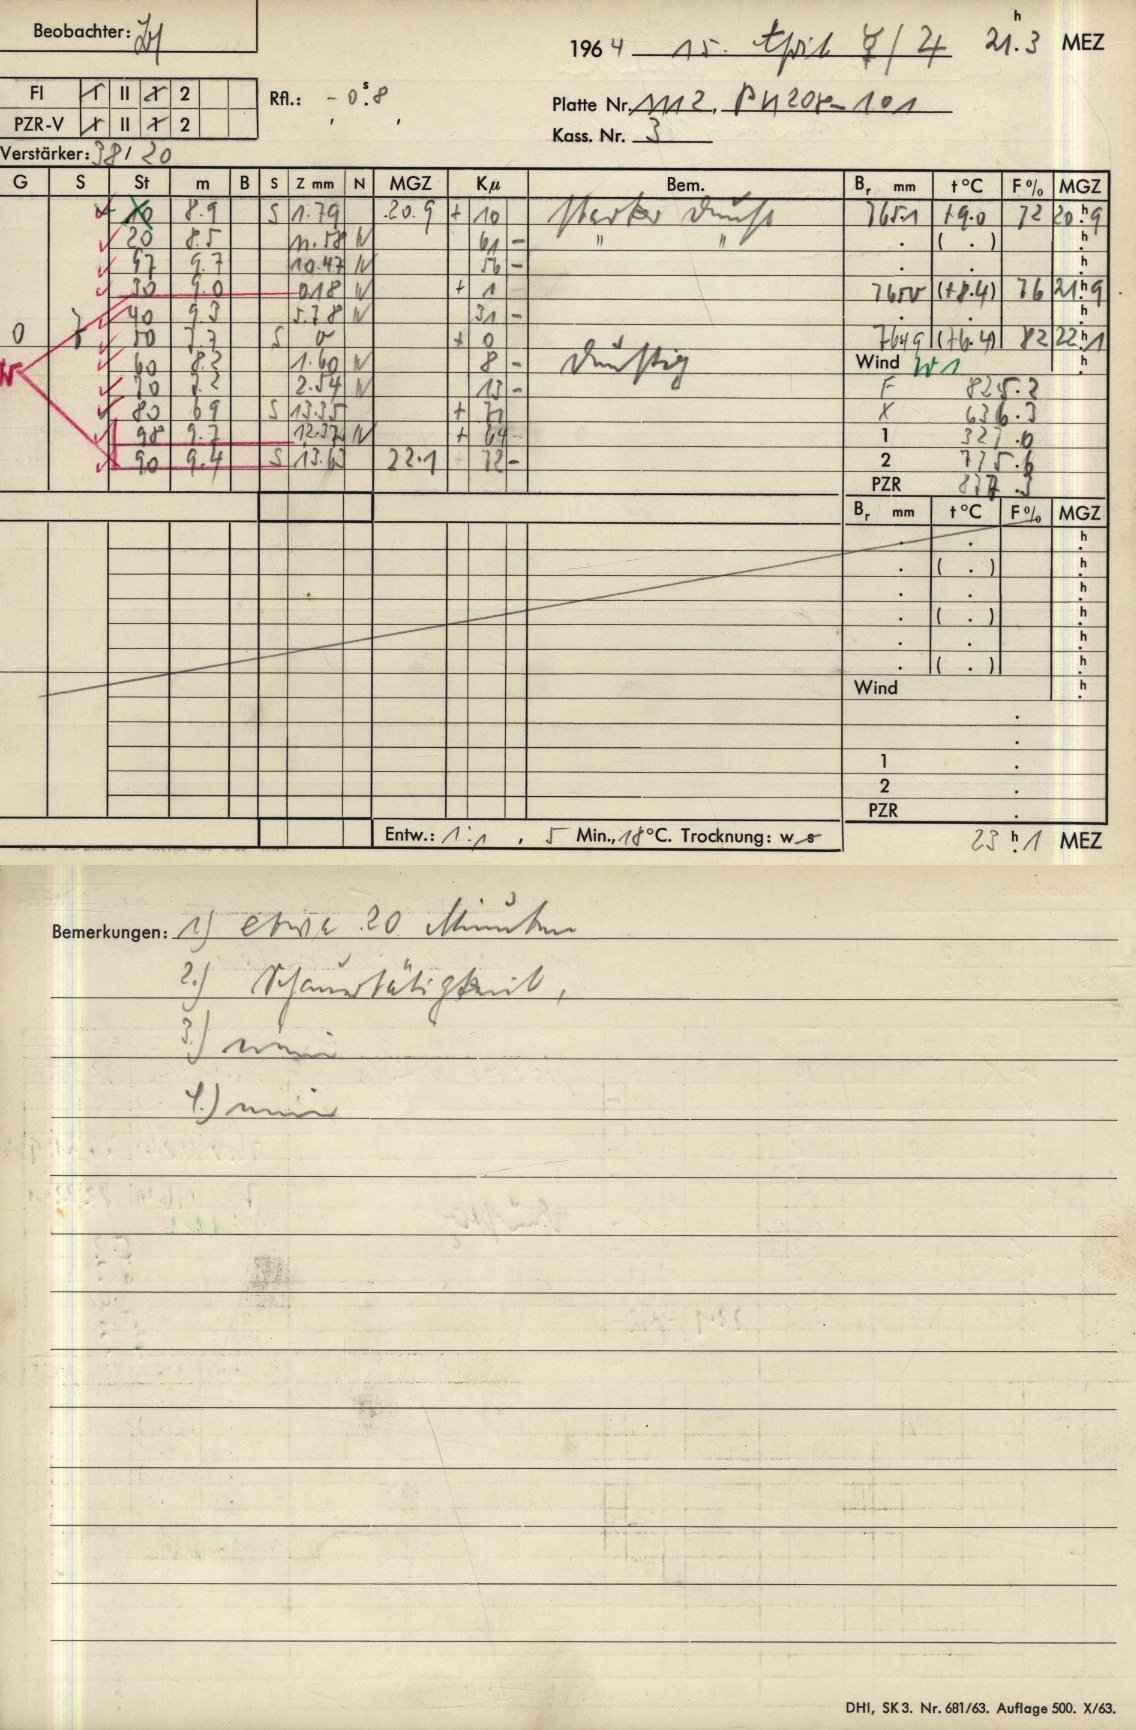 Beobachter:
1964 15. April ☿/♃ 21.ʰ3 MEZ
FI I II 1 2 Rfl.: -0.ˢ8
Platte Nr. 1112, PN208-101
PZR-V I II 1 2
Kass. Nr. 3
Verstärker: 38/20
G S St m B S Z mm N MGZ Kμ Bem. Bᵣ mm t°C F% MGZ
10 8.9 S 1.79 20.9 + 10 starker Dunst 765.1 +9.0 72 20.ʰ9
20 8.5 11.58 N 61 - " " . ( . ) .ʰ
97 9.7 10.47 N 56 - . . .ʰ
30 9.0 0.18 N + 1 - (+8.4) 76 21.ʰ9
40 9.3 5.78 N 31 - . . .ʰ
0 50 7.7 S 0 + 0 764.9 (+6.4) 82 22.1
60 8.2 1.60 N 8 - dunstig Wind W1 .ʰ
70 2.54 N 13 - F 825.2
80 6.9 S 13.35 + X 636.3
98 9.7 12.37 N + 64 - 1 327.0
90 9.4 S 13.63 22.1 72 - 2 775.6
PZR
Bᵣ mm t°C F% MGZ
. . .ʰ
. ( . ) .ʰ
. . .ʰ
. ( . ) .ʰ
. . .ʰ
. ( . ) .ʰ
Wind .ʰ
.
.
1 .
2 .
PZR .
Entw.: 1:1 , 5 Min., 18°C. Trocknung: w s 23.ʰ1 MEZ
Bemerkungen: 1.) etwa 20 Minuten
2.) Schauertätigkeit,
3.) nein
4.) nein
DHI, SK 3. Nr. 681/63. Auflage 500. X/63.